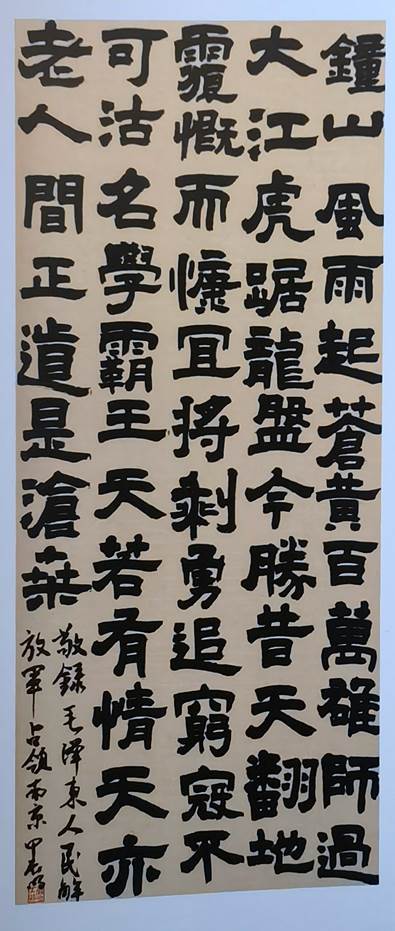 鐘山風雨起蒼黄百萬雄師過
大江虎踞龍盤今勝昔天翻地
覆慨而慷冝將剩勇追窮寇不
可沽名學霸王天若有情天亦
老人間正道是滄桒
敬録毛澤東人民解
放軍占領南京